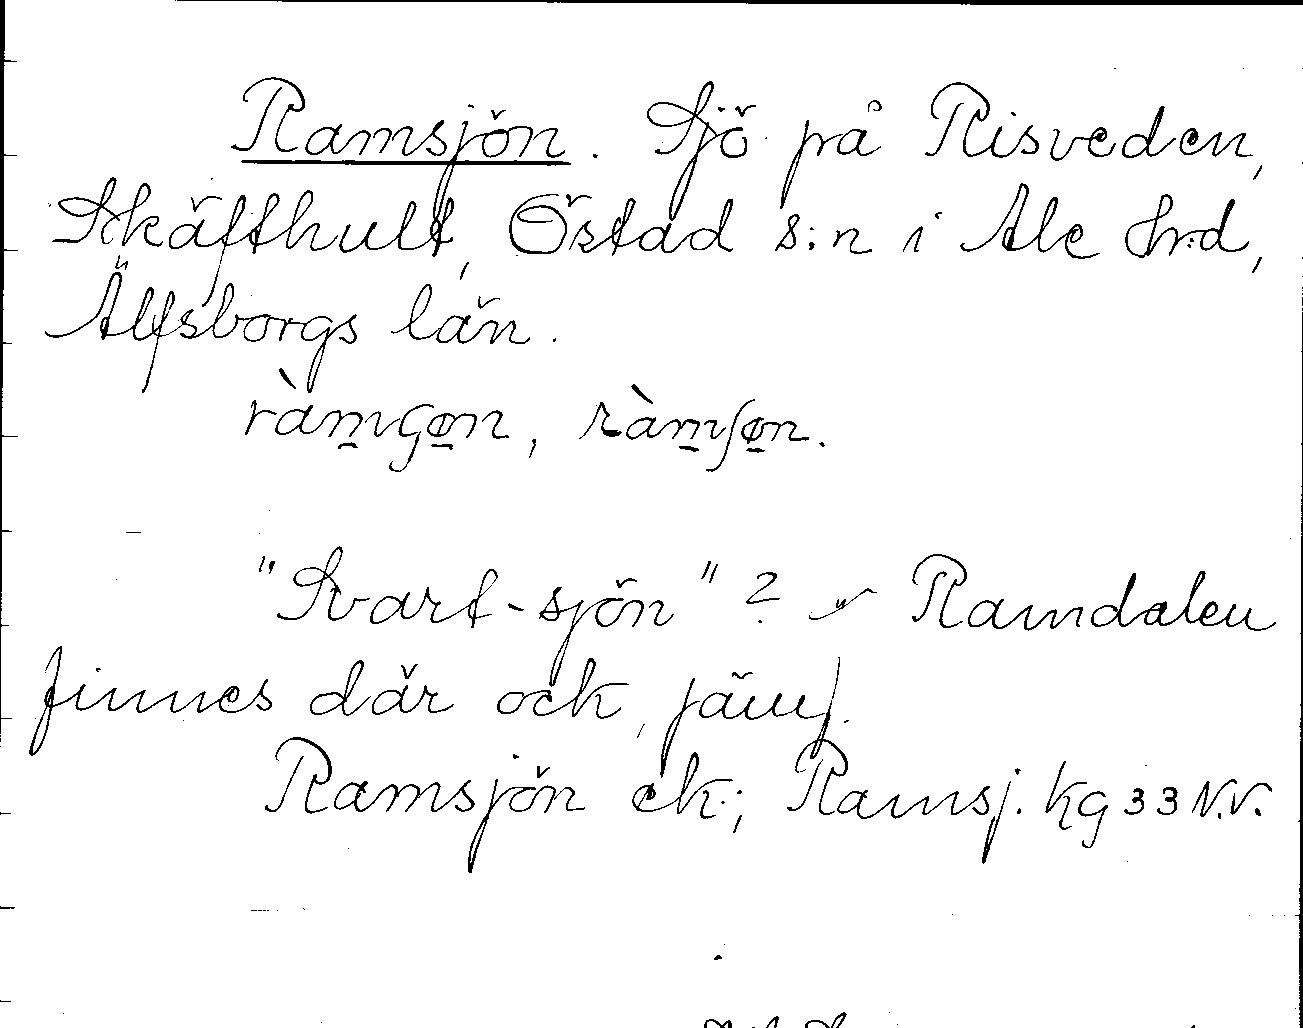 Ramsjön. Sjö på Risveden,
Skäfthult, Östad s:n i Ale hrd,
Älfsborgs län.
ràmɕøn, ràmʃøn.
"Svart-sjön"? Ramdalen
finnes där ock, jämf.
Ramsjön ek.; Ramsj. kg 33 N.V.